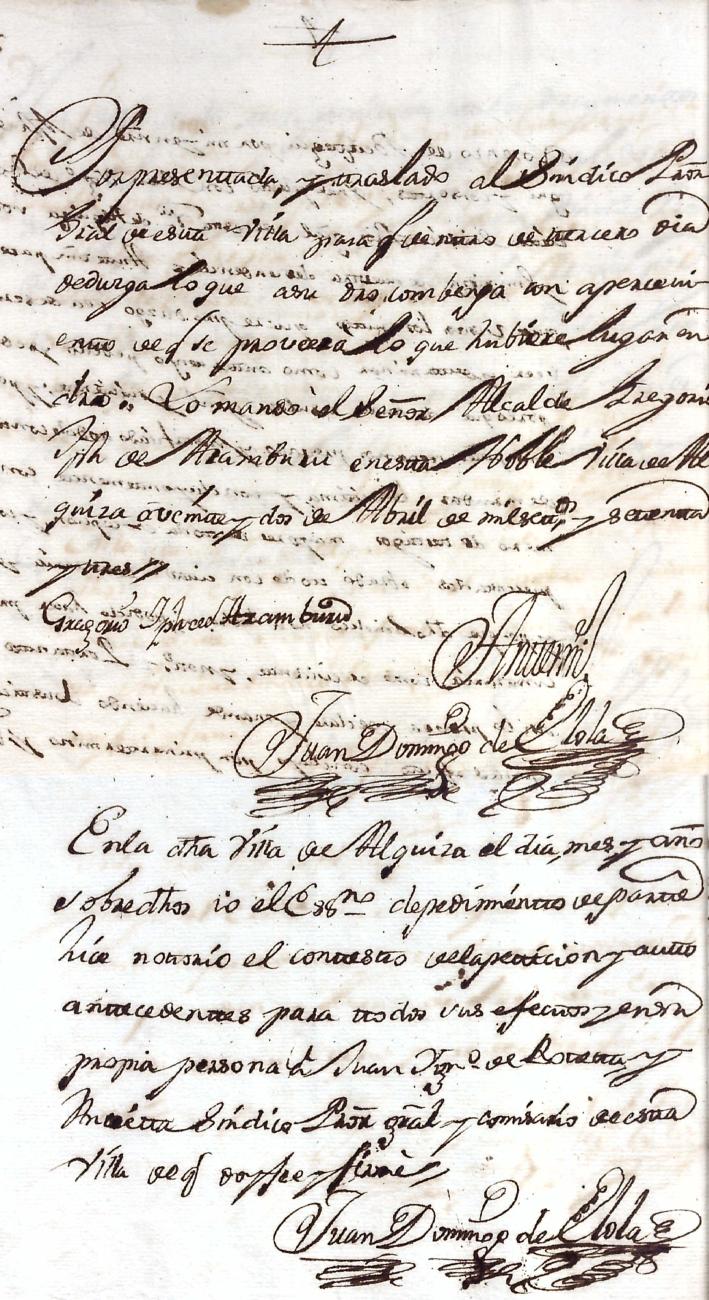 Por presenttada, y traslado al Síndico Pror
Gral de esta Villa para q dentro de tercero dia
deduzga lo que a su dro combenga con apercevi-
ento de q se proveera lo que hubiere lugar en
dro. Lo mandò el Señor Alcalde Gregorio
Jph de Aramburu en esta Noble Villa de Al
quiza a veinte y dos de Abril de mil settos y settenta
y tres
Gregorio Jph de Aramburu
Antemi
Juan Domingo de Elola
En la dha Villa de Alquiza el dia, mes, y año
sobredhos io el Essno de pedimentto de partte
hice notorio el contesto de la peticion y autto
antecedenttes para ttodos sus efecttos en su
propia persona à Juan Ignº de Rotetta y
Síndico Pror gral y comisario de esta
Villa de q doy fee y firmè
Juan Domingo de Elola